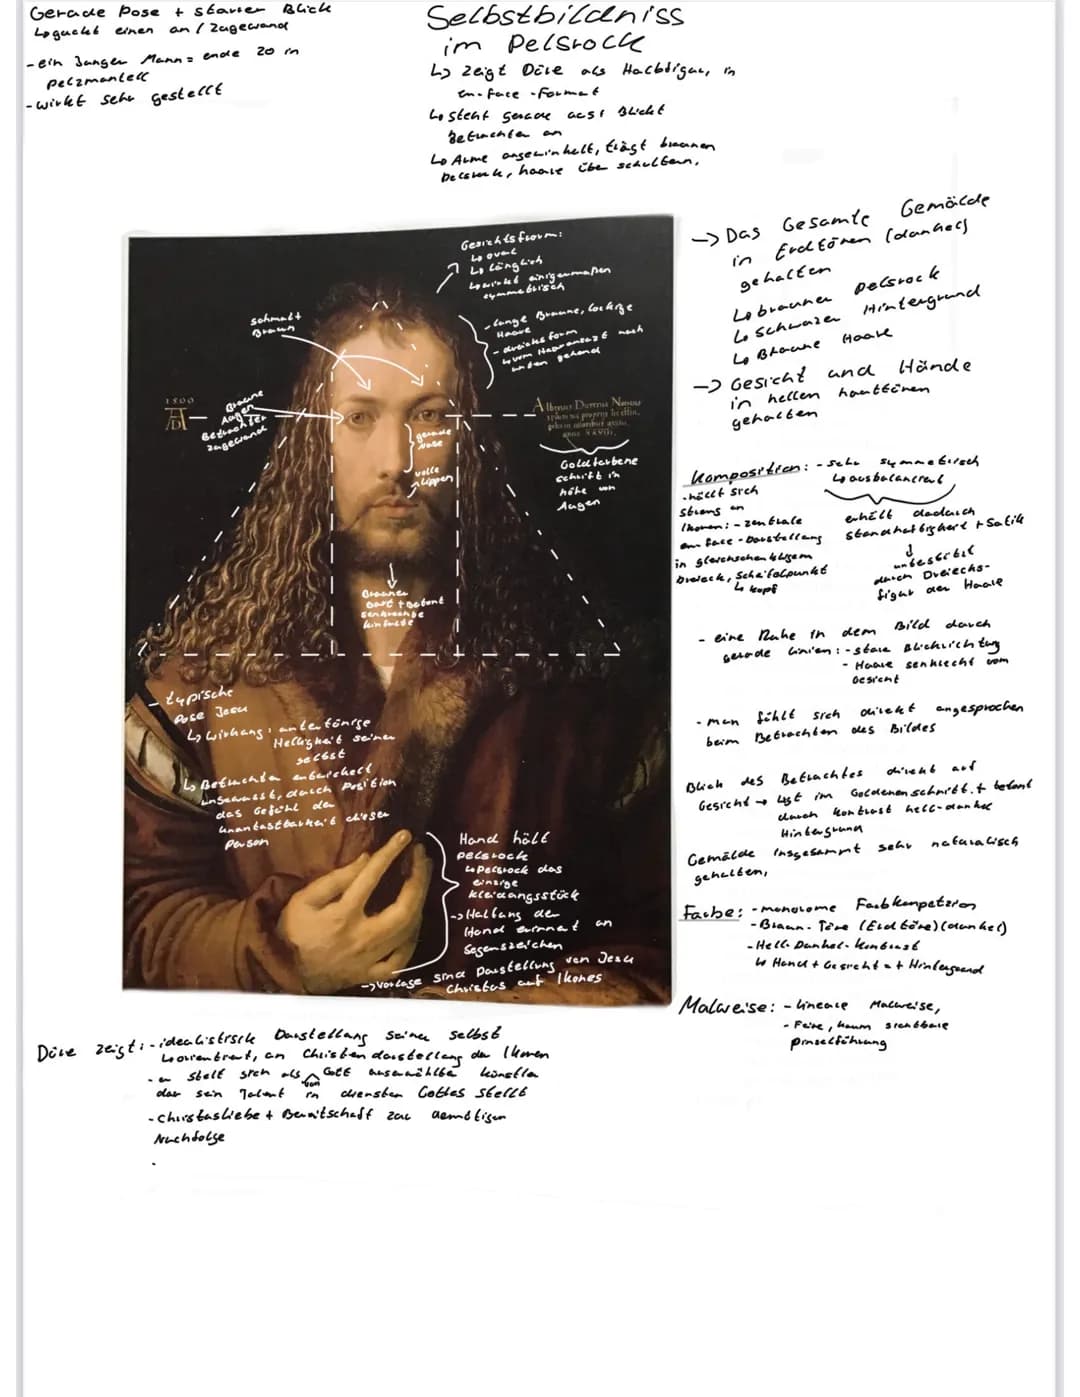 Gerade Pose + starrer Blick
↳ guckt einen an / Zugewand
- ein Junger Mann = ende 20 in
pelzmantell
- wirkt sehr gestellt
Selbstbildniss
im Pelsrock
↳ zeigt Düre als Halbfigur, in
en-face-Format
↳ steht gerade aus, Blickt
Betrachter an
↳ Arme angewinkelt, trägt braunen
Pelsrock, haare über schultern,
→ Das Gesamte Gemälde
in Erdtönen (dunkel)
gehalten
↳ brauner pelsrock
↳ schwarzer Hintergrund
↳ Braune Haare
→ Gesicht und Hände
in hellen hauttönen
gehalten
Gesichtsform:
↳ oval
↳ länglich
↳ wirkt einigermaßen
symmetrisch
schmal +
Braun
- lange Braune, lockige
Haare
- dreiecksform
↳ vom Haaransatz nach
unten gehend
1500
AD
Braune
Augen
Betrachter
zugewand
gerade
Nase
volle
Lippen
Albertus Durerus Noricus
ipsum me proprijs sic effin
gebam coloribus aetatis
anno XXVIII.
Goldfarbene
schrift in
höhe von
Augen
Brauner
Bart + betont
senkrechte
Komposition: - sehr symmetrisch
↳ ausbalanciert
- hällt sich
streng an
Ikonen: - zentrale
en face - Darstellung
in gleichschenkligem
Dreieck, Scheitelpunkt
↳ Kopf
erhält dadurch
standhaftigkeit + Statik
↓
unterstützt
durch Dreiecks-
figur der Haare
- eine Ruhe in dem Bild durch
gerade Linien: - stare Blickrichtung
- Haare senkrecht vom
Gesicht
- man fühlt sich direkt angesprochen
beim Betrachten des Bildes
Blick des Betrachtes direkt auf
Gesicht → Lgt im Goldenen schnitt + betont
durch kontrast hell-dunkel
Hintergrund
Gemälde insgesammt sehr naturalisch
gehalten,
Farbe: - monorome Farbkompetzion
- Braun-Töne (Erdtöne) (dunkel)
- Hell-Dunkel-Kontrast
↳ Hand + Gesicht ↔ Hintergrund
Malweise: - lineare Malweise,
- Feine, kaum sichtbare
pinselführung
- typische
Pose Jesu
↳ Wirkung:
Helligkeit seiner
selbst
↳ Betrachter entwickelt
unbewusst, durch Position
das Gefühl der
Unantastbarkeit dieser
Person
Hand hält
pelsrock
↳ Pelsrock das
einzige
kleidungsstück
-> Haltung der
Hand erinnert an
Segenszeichen
-> vorlage sind Darstellung von Jesu
Christus auf Ikones
Düre zeigt: - idealistisch Darstellung seiner selbst
↳ orientiert, an Christendarstellung der Ikonen
- er stelt sich als von Gott auserwählte künstler
der sein Talent in diensten Gottes stellt
- Christusliebe + Bereitschaft zur demütigen
Nachfolge
.